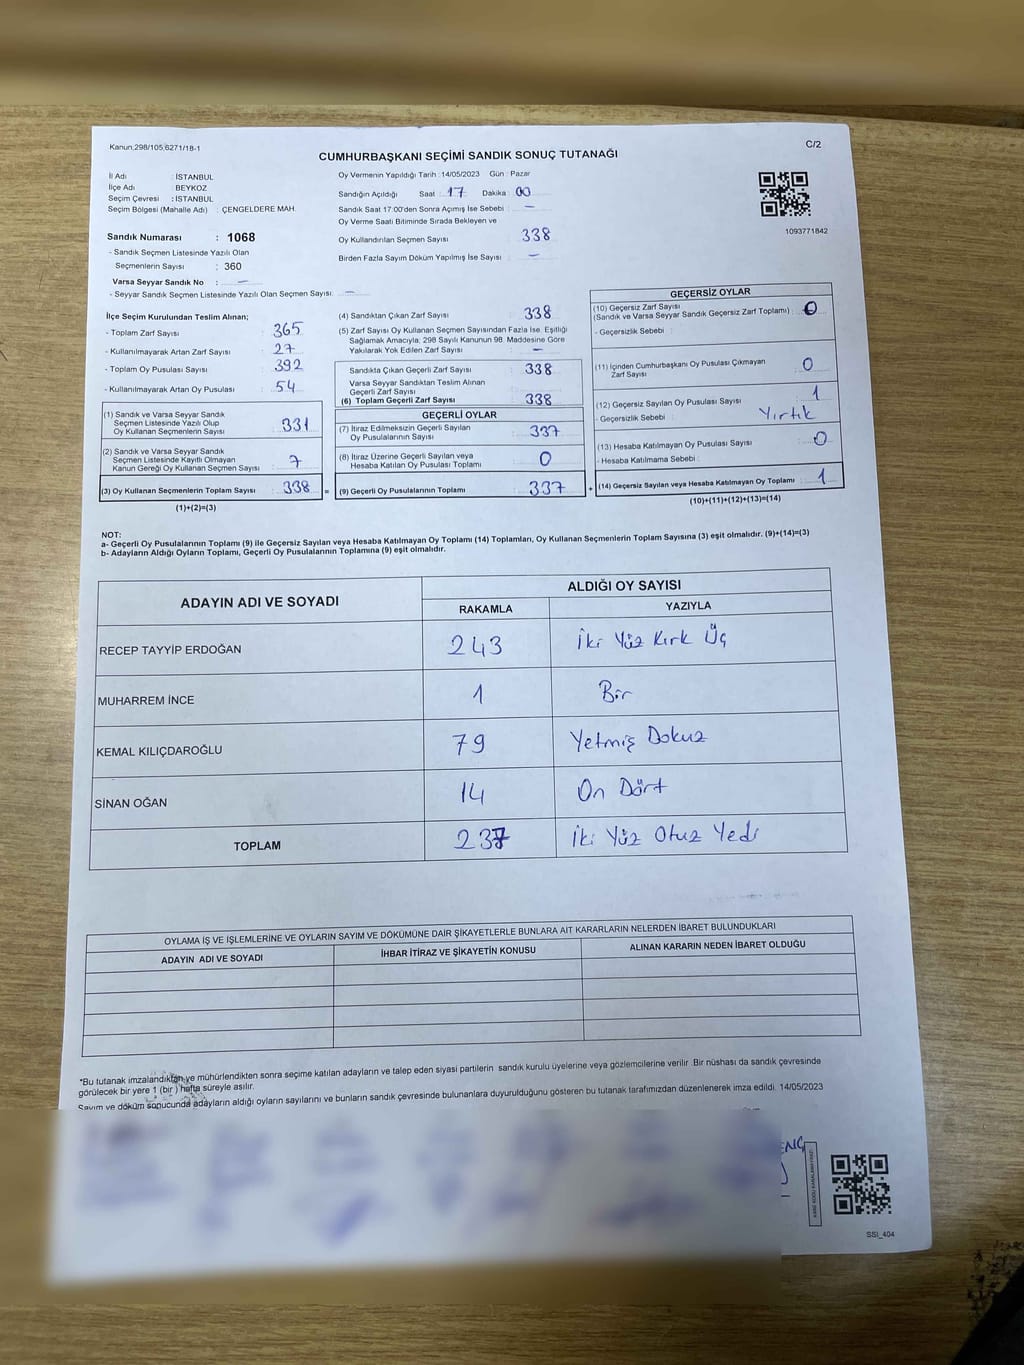 Kanun,298/105,6271/18-1
C/2
CUMHURBAŞKANI SEÇİMİ SANDIK SONUÇ TUTANAĞI
İl Adı : İSTANBUL
İlçe Adı BEYKOZ
Seçim Çevresi : İSTANBUL
Seçim Bölgesi (Mahalle Adı) : ÇENGELDERE MAH.
Sandık Numarası : 1068
- Sandık Seçmen Listesinde Yazılı Olan
Seçmenlerin Sayısı : 360
Varsa Seyyar Sandık No : –
- Seyyar Sandık Seçmen Listesinde Yazılı Olan Seçmen Sayısı: –
Oy Vermenin Yapıldığı Tarih : 14/05/2023 Gün : Pazar
Sandığın Açıldığı Saat : 17 Dakika : 00
Sandık Saat 17:00'den Sonra Açımış İse Sebebi : –
Oy Verme Saati Bitiminde Sırada Bekleyen ve
Oy Kullandırılan Seçmen Sayısı 338
Birden Fazla Sayım Döküm Yapılmış İse Sayısı : –
1093771842
İlçe Seçim Kurulundan Teslim Alınan;
- Toplam Zarf Sayısı : 365
- Kullanılmayarak Artan Zarf Sayısı : 27
- Toplam Oy Pusulası Sayısı : 392
- Kullanılmayarak Artan Oy Pusulası : 54
(1) Sandık ve Varsa Seyyar Sandık
Seçmen Listesinde Yazılı Olup
Oy Kullanan Seçmenlerin Sayısı : 331
(2) Sandık ve Varsa Seyyar Sandık
Seçmen Listesinde Kayıtlı Olmayan
Kanun Gereği Oy Kullanan Seçmen Sayısı : 7
(3) Oy Kullanan Seçmenlerin Toplam Sayısı : 338
(1)+(2)=(3)
=
(4) Sandıktan Çıkan Zarf Sayısı : 338
(5) Zarf Sayısı Oy Kullanan Seçmen Sayısından Fazla İse, Eşitliği
Sağlamak Amacıyla; 298 Sayılı Kanunun 98. Maddesine Göre
Yakılarak Yok Edilen Zarf Sayısı : –
Sandıkta Çıkan Geçerli Zarf Sayısı : 338
Varsa Seyyar Sandıktan Teslim Alınan
Geçerli Zarf Sayısı
(6) Toplam Geçerli Zarf Sayısı : 338
GEÇERLİ OYLAR
(7) İtiraz Edilmeksizin Geçerli Sayılan
Oy Pusulalarının Sayısı : 337
(8) İtiraz Üzerine Geçerli Sayılan veya
Hesaba Katılan Oy Pusulası Toplamı : 0
(9) Geçerli Oy Pusulalarının Toplamı : 337
+
GEÇERSİZ OYLAR
(10) Geçersiz Zarf Sayısı
(Sandık ve Varsa Seyyar Sandık Geçersiz Zarf Toplamı) : 0
- Geçersizlik Sebebi :
(11) İçinden Cumhurbaşkanı Oy Pusulası Çıkmayan
Zarf Sayısı : 0
(12) Geçersiz Sayılan Oy Pusulası Sayısı : 1
- Geçersizlik Sebebi : Yırtık
(13) Hesaba Katılmayan Oy Pusulası Sayısı : 0
- Hesaba Katılmama Sebebi :
(14) Geçersiz Sayılan veya Hesaba Katılmayan Oy Toplamı : 1
(10)+(11)+(12)+(13)=(14)
NOT:
a- Geçerli Oy Pusulalarının Toplamı (9) ile Geçersiz Sayılan veya Hesaba Katılmayan Oy Toplamı (14) Toplamları, Oy Kullanan Seçmenlerin Toplam Sayısına (3) eşit olmalıdır. (9)+(14)=(3)
b- Adayların Aldığı Oyların Toplamı, Geçerli Oy Pusulalarının Toplamına (9) eşit olmalıdır.
ADAYIN ADI VE SOYADI ALDIĞI OY SAYISI
RAKAMLA YAZIYLA
RECEP TAYYİP ERDOĞAN 243 İki Yüz Kırk Üç
MUHARREM İNCE 1 Bir
KEMAL KILIÇDAROĞLU 79 Yetmiş Dokuz
SİNAN OĞAN 14 On Dört
TOPLAM 237 İki Yüz Otuz Yedi
OYLAMA İŞ VE İŞLEMLERİNE VE OYLARIN SAYIM VE DÖKÜMÜNE DAİR ŞİKAYETLERLE BUNLARA AİT KARARLARIN NELERDEN İBARET BULUNDUKLARI
ADAYIN ADI VE SOYADI İHBAR İTİRAZ VE ŞİKAYETİN KONUSU ALINAN KARARIN NEDEN İBARET OLDUĞU
*Bu tutanak imzalandıktan ve mühürlendikten sonra seçime katılan adayların ve talep eden siyasi partilerin sandık kurulu üyelerine veya gözlemcilerine verilir. Bir nüshası da sandık çevresinde
görülecek bir yere 1 (bir ) hafta süreyle asılır.
Sayım ve döküm sonucunda adayların aldığı oyların sayılarını ve bunların sandık çevresinde bulunanlara duyurulduğunu gösteren bu tutanak tarafımızdan düzenlenerek imza edildi. 14/05/2023
SSI_404